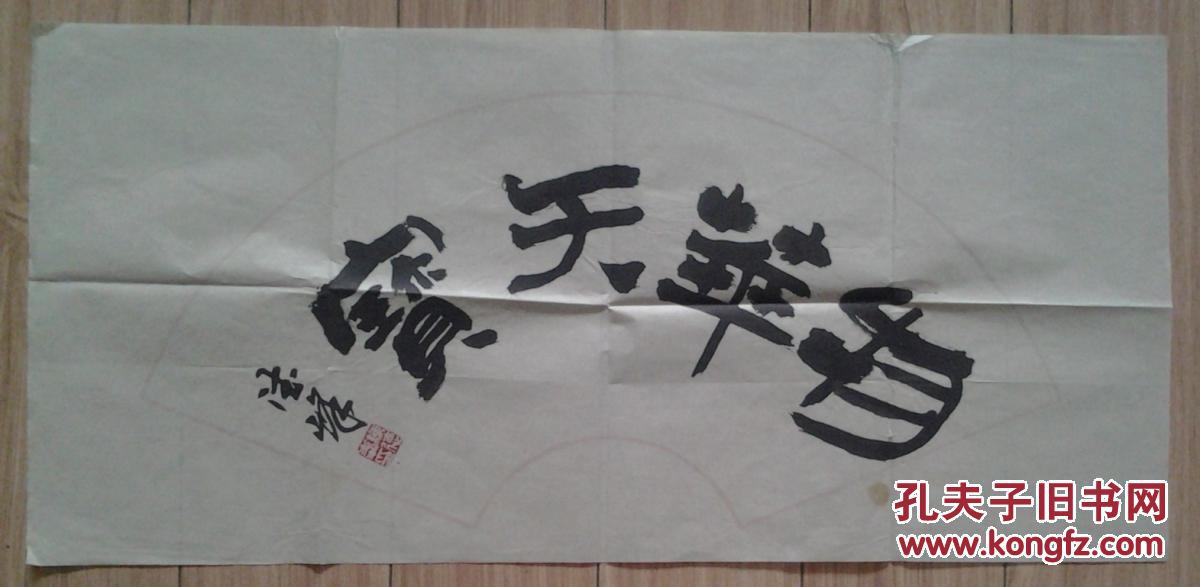 物華天寶
孔夫子旧书网
www.kongfz.com